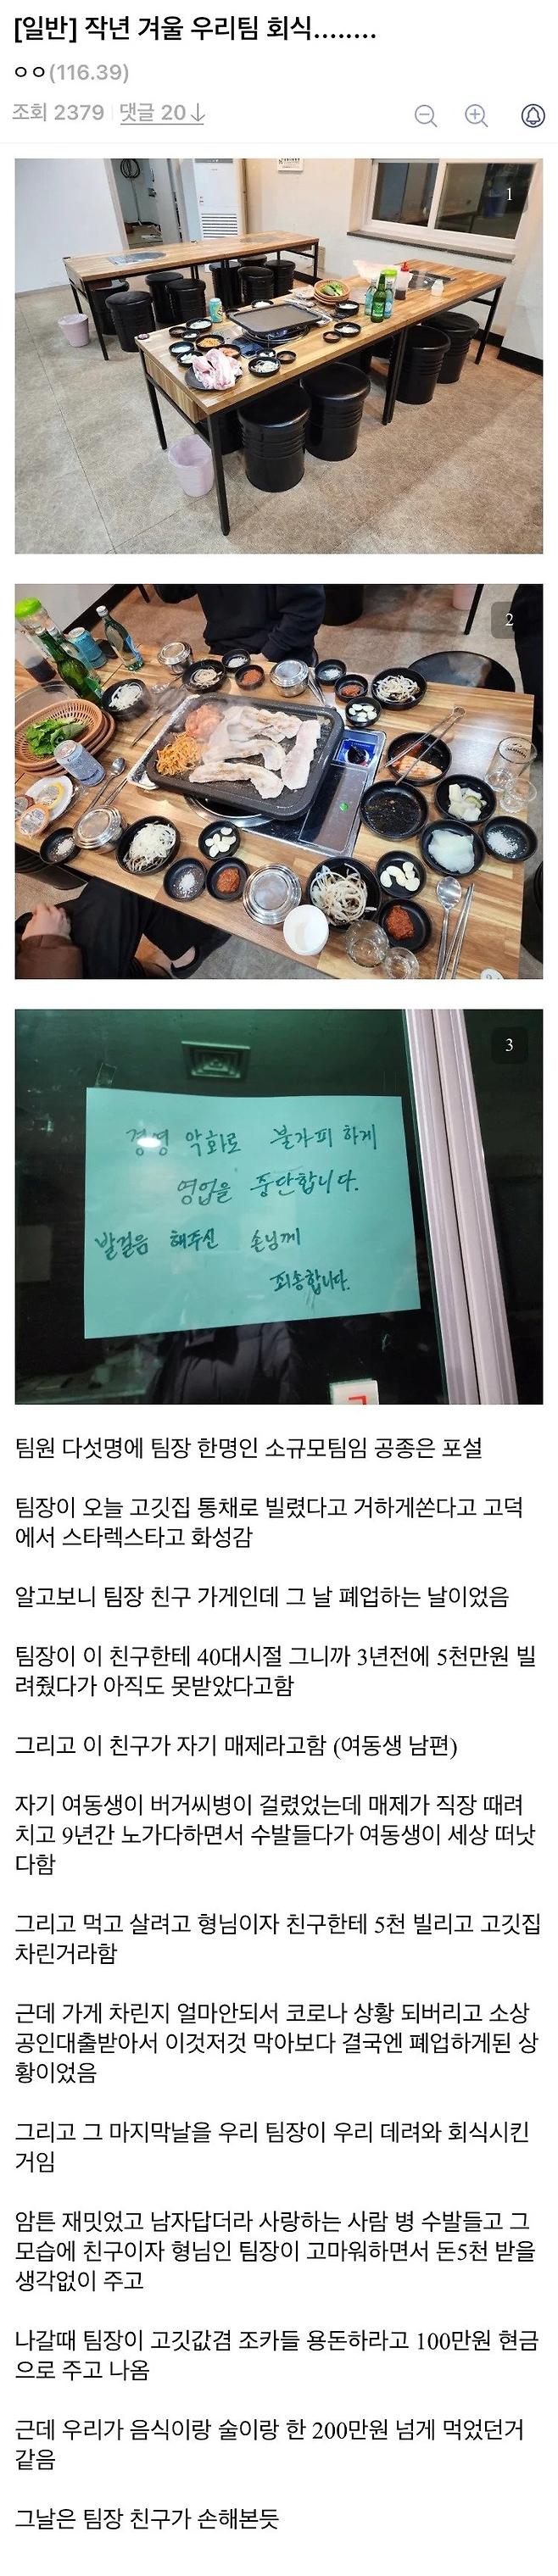 [일반] 작년 겨울 우리팀 회식........
ㅇㅇ(116.39)
조회 2379 댓글 20↓
1
2
3
경영 악화로 불가피 하게
영업을 중단합니다.
발걸음 해주신 손님께
죄송합니다.
팀원 다섯명에 팀장 한명인 소규모팀임 공종은 포설
팀장이 오늘 고깃집 통채로 빌렸다고 거하게쏜다고 고덕
에서 스타렉스타고 화성감
알고보니 팀장 친구 가게인데 그 날 폐업하는 날이었음
팀장이 이 친구한테 40대시절 그니까 3년전에 5천만원 빌
려줬다가 아직도 못받았다고함
그리고 이 친구가 자기 매제라고함 (여동생 남편)
자기 여동생이 버거씨병이 걸렸었는데 매제가 직장 때려
치고 9년간 노가다하면서 수발들다가 여동생이 세상 떠낫
다함
그리고 먹고 살려고 형님이자 친구한테 5천 빌리고 고깃집
차린거라함
근데 가게 차린지 얼마안되서 코로나 상황 되버리고 소상
공인대출받아서 이것저것 막아보다 결국엔 폐업하게된 상
황이었음
그리고 그 마지막날을 우리 팀장이 우리 데려와 회식시킨
거임
암튼 재밋었고 남자답더라 사랑하는 사람 병 수발들고 그
모습에 친구이자 형님인 팀장이 고마워하면서 돈5천 받을
생각없이 주고
나갈때 팀장이 고깃값겸 조카들 용돈하라고 100만원 현금
으로 주고 나옴
근데 우리가 음식이랑 술이랑 한 200만원 넘게 먹었던거
같음
그날은 팀장 친구가 손해본듯